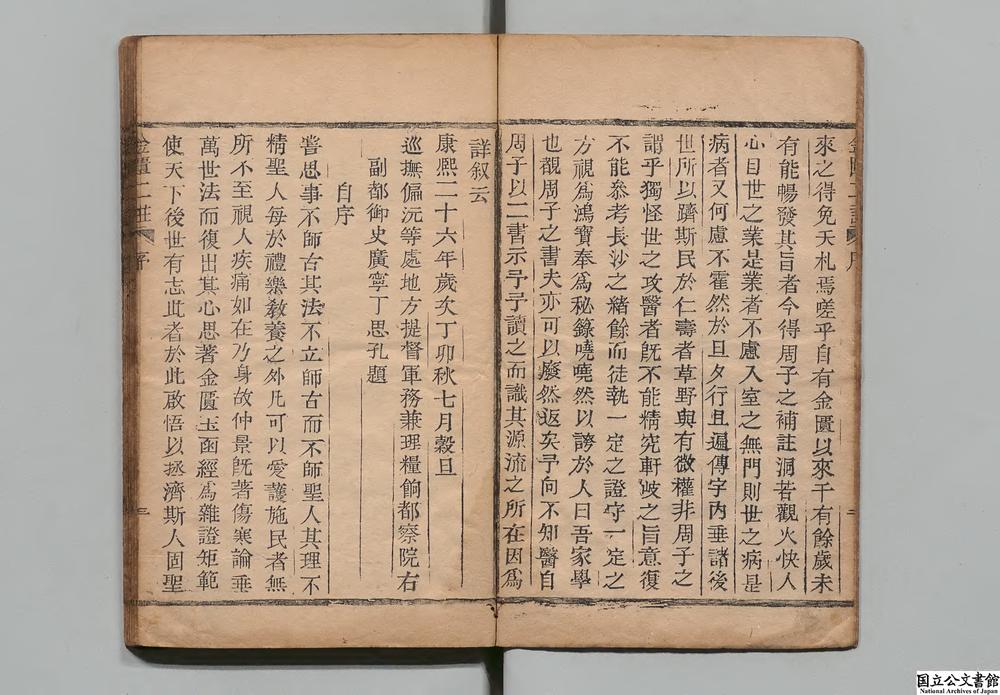 來之得免夭札焉嗟乎自有金匱以來千有餘歲未
有能暢發其旨者今得周子之補註洞若觀火快人
心目世之業是業者不慮入室之無門則世之病是
病者又何慮不霍然於旦夕行且遍傳宇內垂諸後
世所以躋斯民於仁壽者草野與有微權非周子之
謂乎獨怪世之攻醫者旣不能精究軒岐之旨意復
不能叅考長沙之緒餘而徒執一定之證守一定之
方視爲鴻寶奉爲秘籙嘵嘵然以誇於人曰吾家學
也觀周子之書夫亦可以廢然返矣予向不知醫自
周子以二書示予予讀之而識其源流之所在因爲
詳叙云
康熙二十六年歲次丁卯秋七月穀旦
巡撫偏沅等處地方提督軍務兼理糧餉都察院右
副都御史廣寧丁思孔題
自序
嘗思事不師古其法不立師古而不師聖人其理不
精聖人每於禮樂敎養之外凡可以愛護施民者無
所不至視人疾痛如在乃身故仲景旣著傷寒論垂
萬世法而復出其心思著金匱玉函經爲雜證矩範
使天下後世有志此者於此啟悟以拯濟斯人固聖
金匱二註 序
二
金匱二註 序
三
国立公文書館
National Archives of Japan